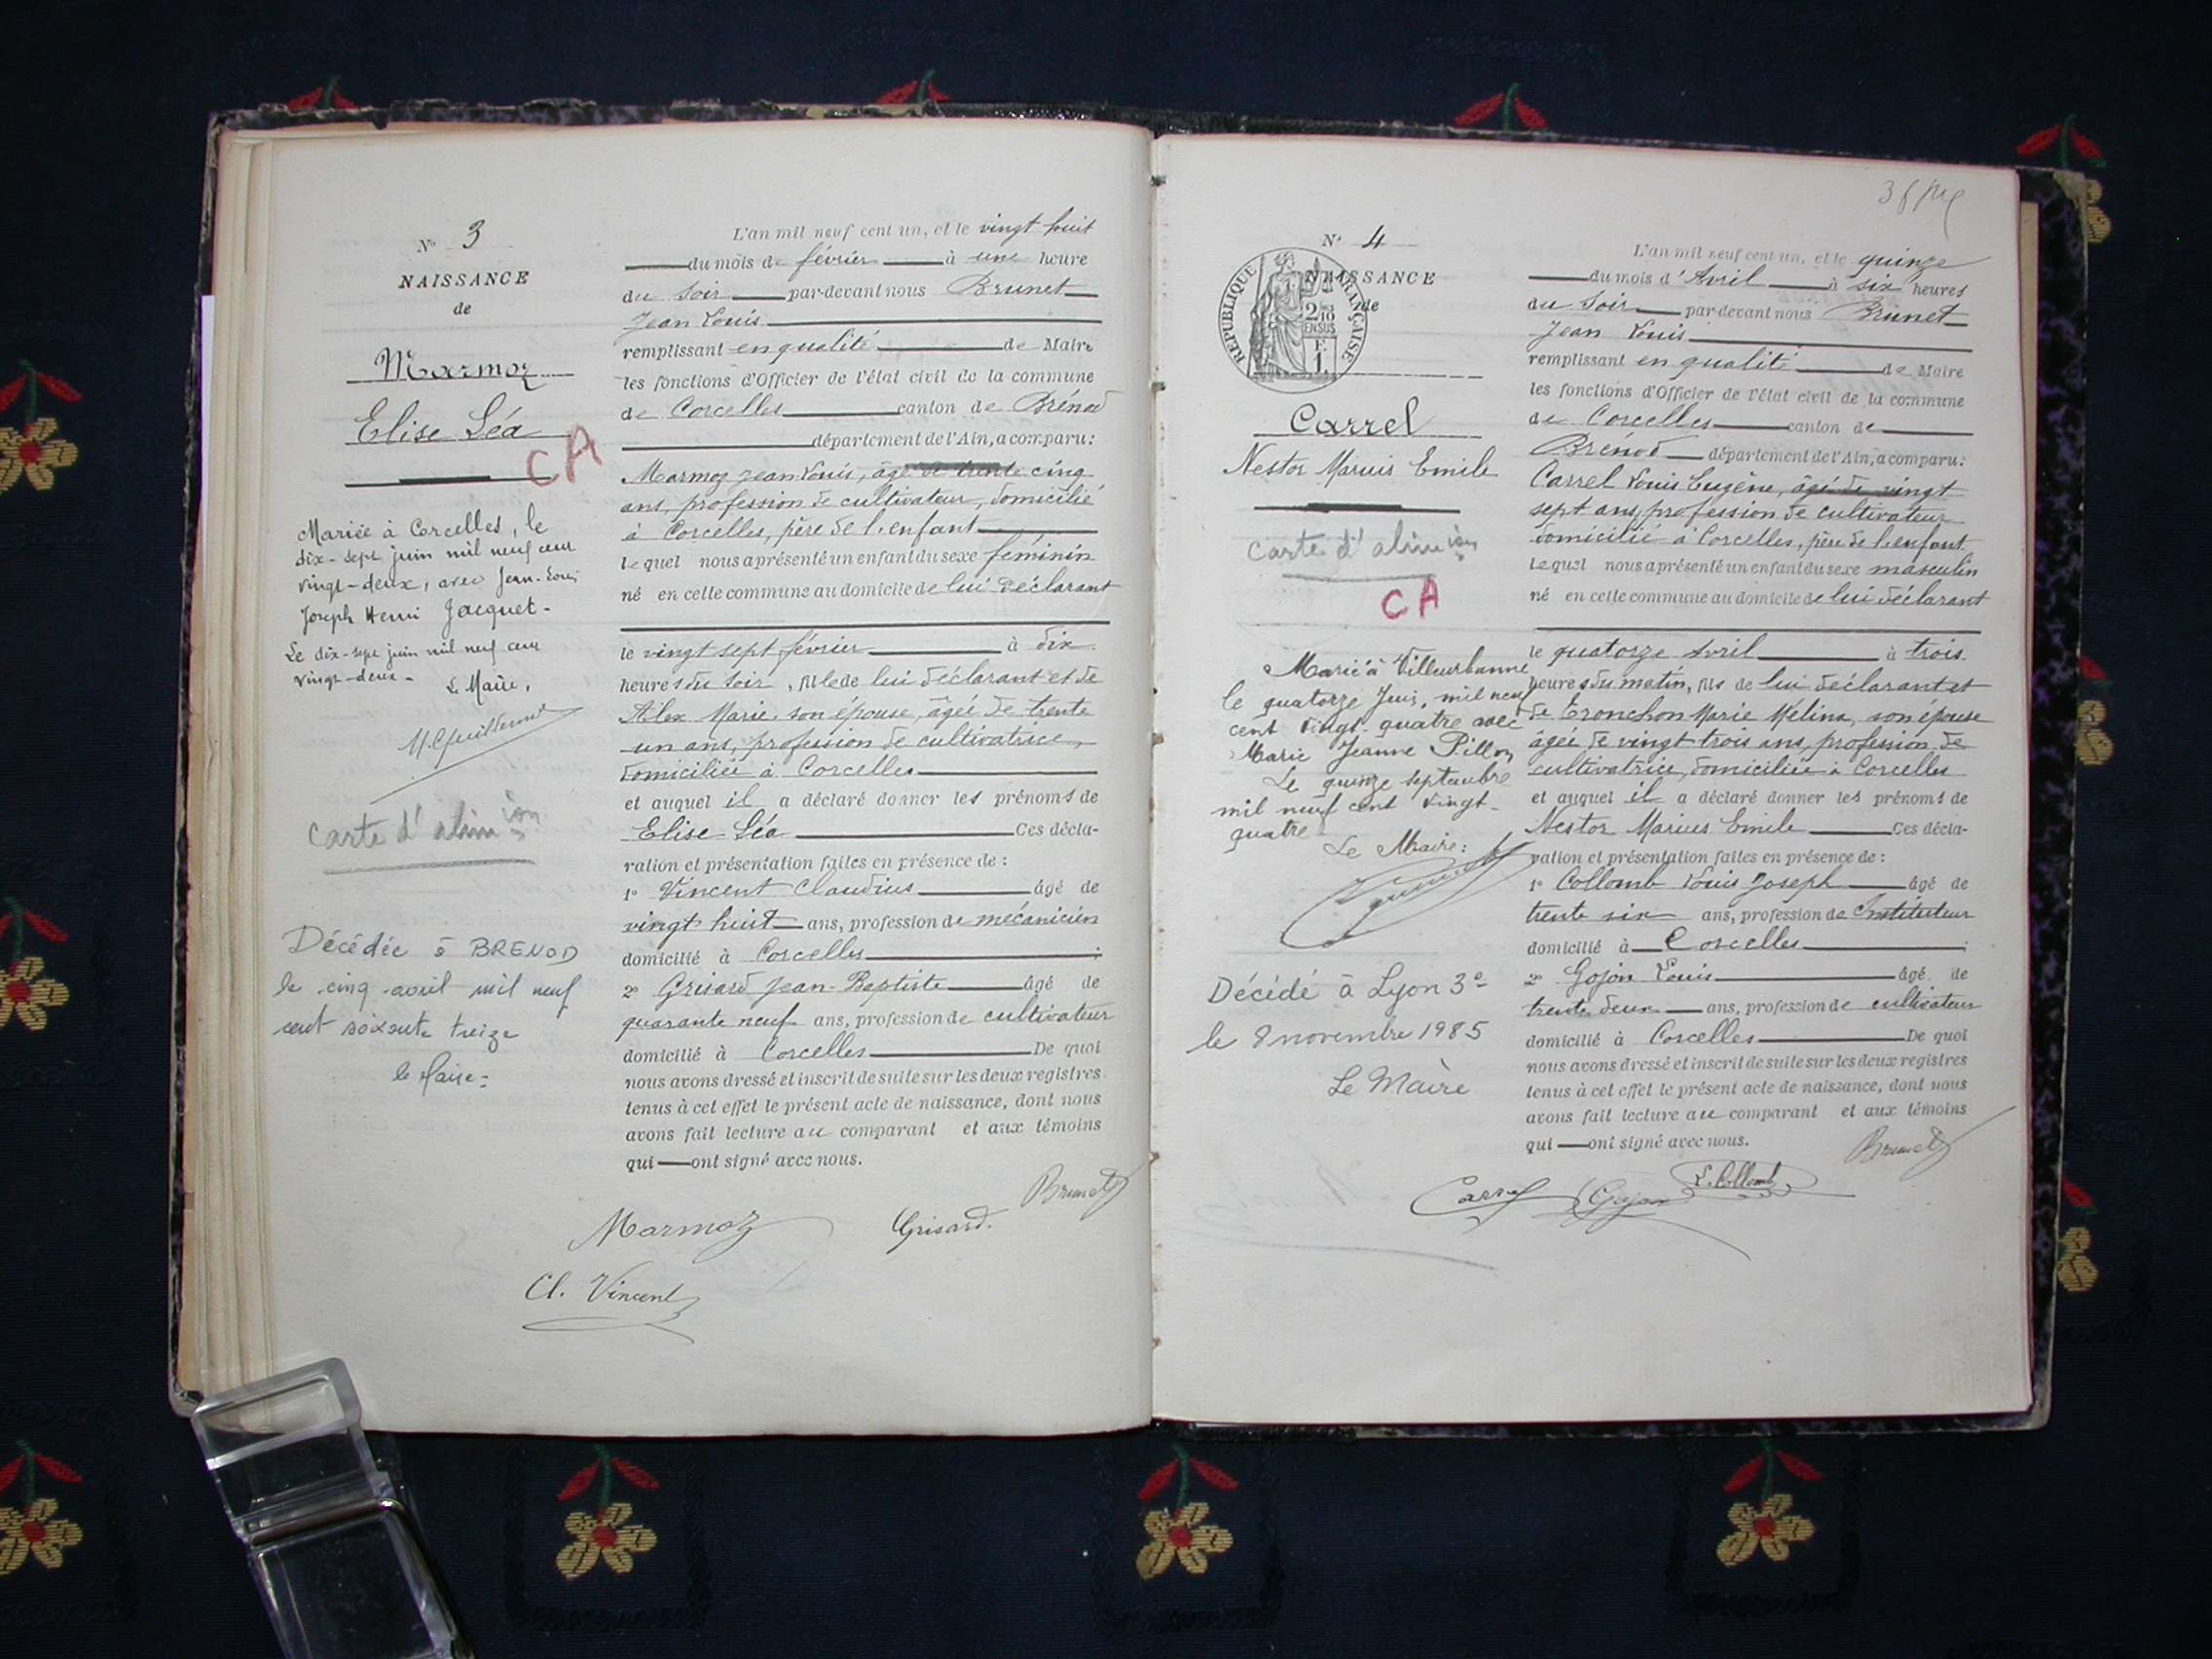 N° 3
NAISSANCE
de
Marmoz
Elise Léa
CA
Mariée à Corcelles, le
dix-sept juin mil neuf cent
vingt-deux, avec Jean-Louis
Joseph Henri Jacquet.
Le dix-sept juin mil neuf cent
vingt-deux.
Le Maire,
carte d'alimion
Décédée à BRENOD
le cinq avril mil neuf
cent soixante treize
le Maire:
L'an mil neuf cent un, et le vingt huit
du mois de février à une heure
du soir par-devant nous Brunet
Jean Louis
remplissant en qualité de Maire
les fonctions d'Officier de l'état civil de la commune
de Corcelles canton de Brénod
département de l'Ain, a comparu:
Marmoz Jean Louis, âgé de trente cinq
ans, profession de cultivateur, domicilié
à Corcelles, père de l'enfant
lequel nous a présenté un enfant du sexe féminin
né en cette commune au domicile de lui déclarant
le vingt sept février à dix
heures du soir, fille de lui déclarant et de
Alex Marie, son épouse, âgée de trente
un ans, profession de cultivatrice,
domiciliée à Corcelles
et auquel il a déclaré donner les prénoms de
Elise Léa Ces décla-
ration et présentation faites en présence de:
1° Vincent Claudius âgé de
vingt huit ans, profession de mécanicien
domicilié à Corcelles;
2° Grisard Jean-Baptiste âgé de
quarante neuf ans, profession de cultivateur
domicilié à Corcelles De quoi
nous avons dressé et inscrit de suite sur les deux registres
tenus à cet effet le présent acte de naissance, dont nous
avons fait lecture au comparant et aux témoins
qui ont signé avec nous.
Brunet
Marmoz Grisard.
Cl. Vincent
N° 4
NAISSANCE
de
REPUBLIQUE FRANÇAISE
2/10
EN SUS
F.
1.
Carrel
Nestor Marius Emile
carte d'alimion
CA
Marié à Villeurbanne
le quatorze Juin, mil neuf
cent vingt-quatre avec
Marie Jeanne Pillon
Le quinze septembre
mil neuf cent vingt-
quatre
Le Maire:
Décédé à Lyon 3e
le 8 novembre 1985
Le Maire
L'an mil neuf cent un, et le quinze
du mois d'Avril à six heures
du soir par-devant nous Brunet
Jean Louis
remplissant en qualité de Maire
les fonctions d'Officier de l'état civil de la commune
de Corcelles canton de
Brénod département de l'Ain, a comparu:
Carrel Louis Eugène, âgé de vingt
sept ans, profession de cultivateur
domicilié à Corcelles, père de l'enfant
lequel nous a présenté un enfant du sexe masculin
né en cette commune au domicile de lui déclarant
le quatorze avril à trois
heures du matin, fils de lui déclarant et
de Tronchon Marie Mélina, son épouse
âgée de vingt trois ans, profession de
cultivatrice, domiciliée à Corcelles
et auquel il a déclaré donner les prénoms de
Nestor Marius Emile Ces décla-
ration et présentation faites en présence de:
1° Collomb Louis Joseph âgé de
trente six ans, profession de Instituteur
domicilié à Corcelles;
2° Gojon Louis âgé de
trente deux ans, profession de cultivateur
domicilié à Corcelles De quoi
nous avons dressé et inscrit de suite sur les deux registres
tenus à cet effet le présent acte de naissance, dont nous
avons fait lecture au comparant et aux témoins
qui ont signé avec nous.
Brunet
Carrel Gojon L. Collomb